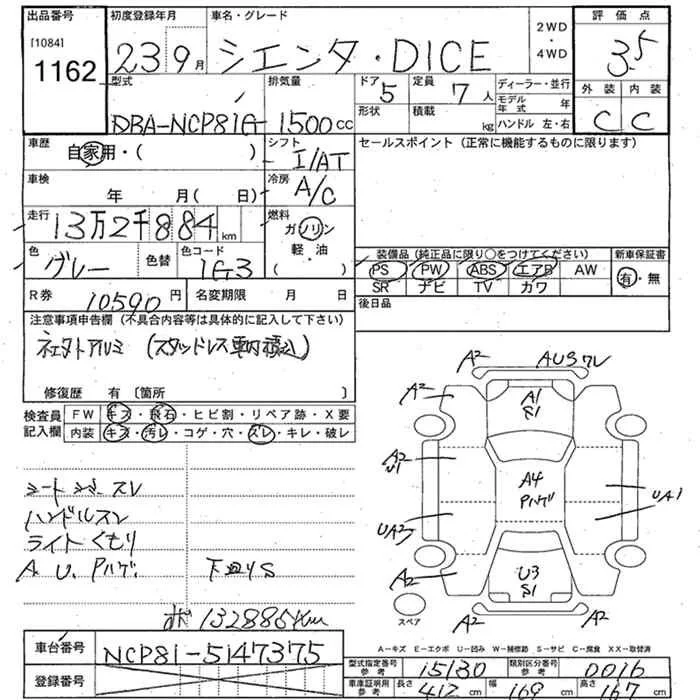 出品番号 初度登録年月 車名・グレード 2WD・4WD 評価点
[1084] 1162 23 9月 シエンタ・DICE 3.5
型式 排気量 ドア 5 定員 7人 ディーラー・並行 外装 内装
形状 積載 kg モデル年式 年
DBA-NCP81G 1500cc ハンドル 左・右 C C
車歴 自家用・( ) シフト I/AT セールスポイント（正常に機能するものに限ります）
車検 年 月( 日) 冷房 A/C
走行 13万2千884km 燃料 ガソリン・軽油( )
色 グレー 色替 色コード 1G3
装備品（純正品に限り○をつけてください） 新車保証書
PS PW ABS エアB AW 有・無
SR ナビ TV カワ
R券 10590円 名変期限 月 日 後日品
注意事項申告欄（不具合内容等は具体的に記入して下さい）
(スタッドレス車内積込)
修復歴 有〔箇所 〕
検査員記入欄 FW キズ・飛石・ヒビ割・リペア跡・X要
内装 キズ・汚レ・コゲ・穴・ズレ・キレ・破レ
A2 AUSワレ
A2 A1 S1
A2 U1
A4 Pハゲ
UA1
UA3
A2 U3 S1
A2 A2
スペア
ハンドルスレ
ライトくもり
A U. Pハゲ. 下廻りS
132885km
A－キズ E－エクボ U－凹み W－補修跡 S－サビ C－腐食 XX－取替済
車台番号 NCP81-5147375
登録番号
型式指定番号参考 15130 類別区分番号参考 0016
車庫証明用参考 長さ 412cm 幅 169cm 高さ 167cm